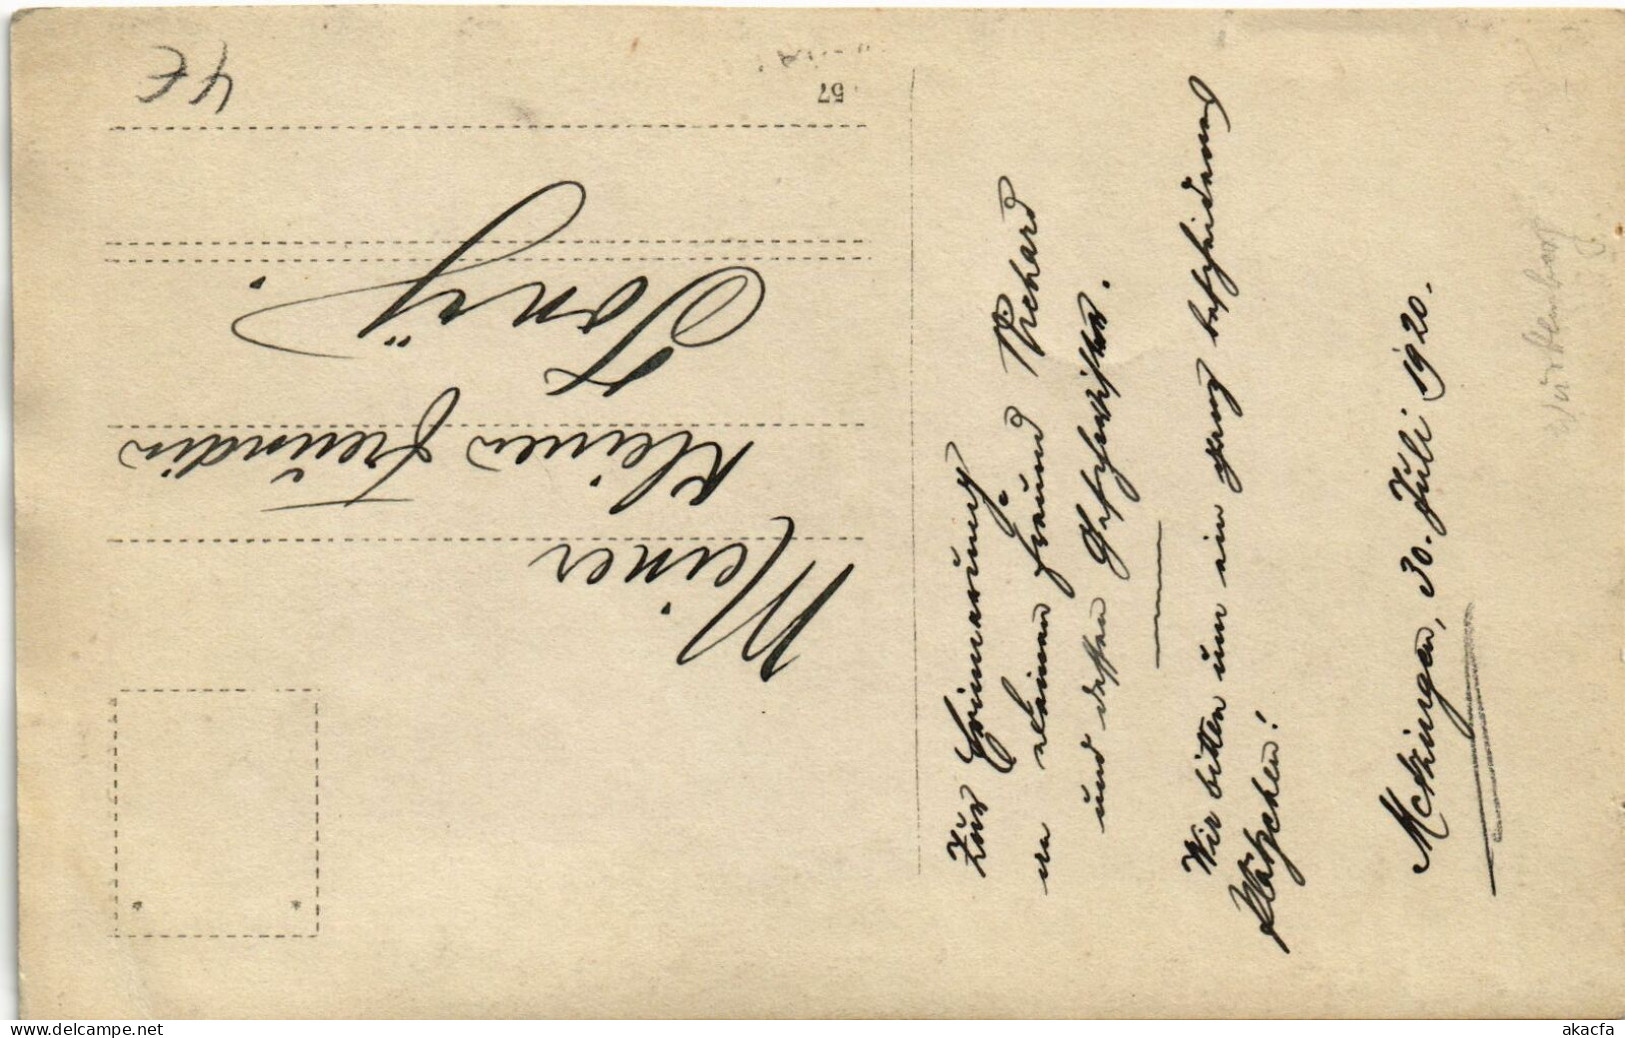 Meiner
kleinen Freundin
Tony.
Zur Erinnerung
an kleinen Freund Richard
und dessen Geschwister.
Wir bitten um ein ganz bescheidenes
Plätzchen!
Metzingen, 30. Juli 1920.
Württemberg
57
4€
akacfa
www.delcampe.net